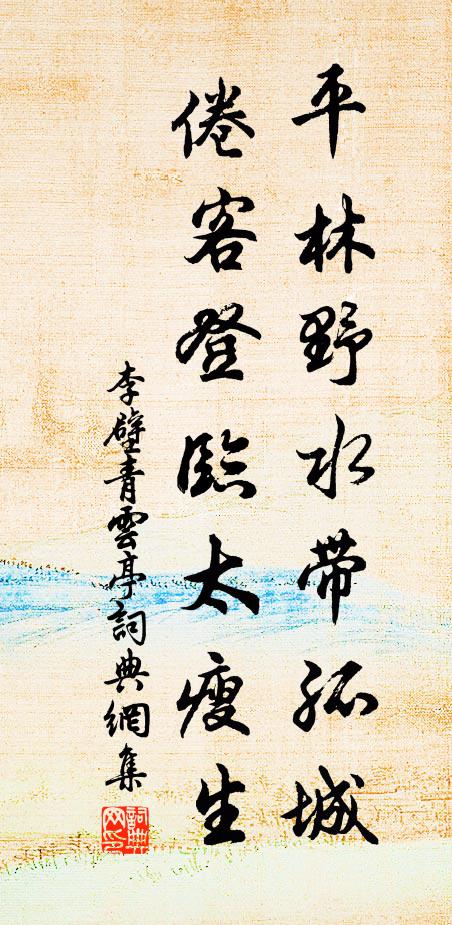 平林野水带孤城
倦客登臨太瘦生
李壁青雲亭詞典網集
詞典網印